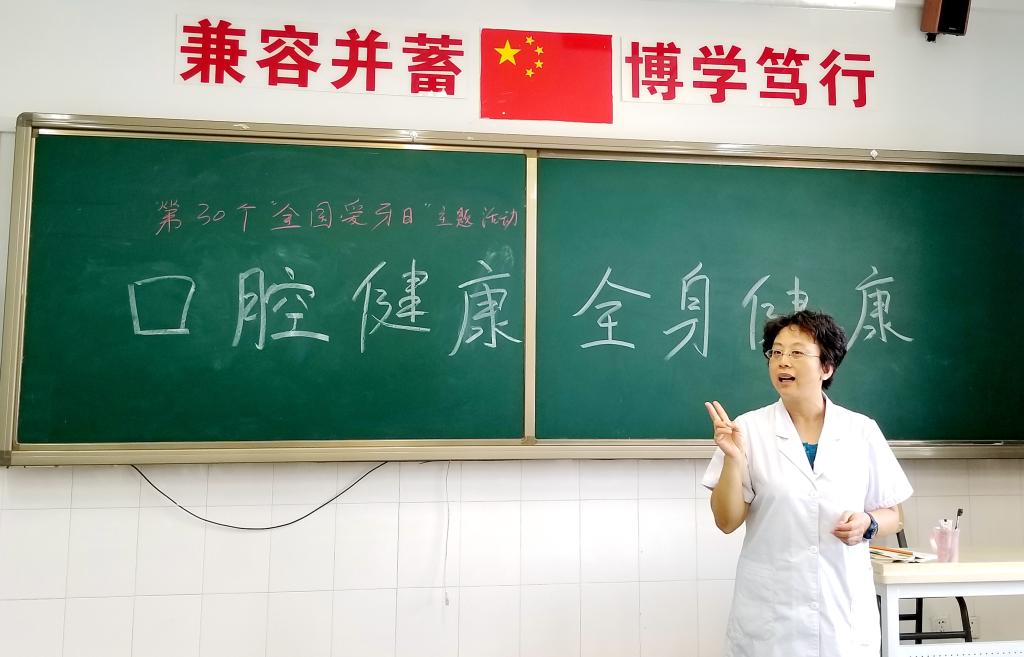 兼容并蓄 博学笃行
第30个"全国爱牙日"主题活动
口腔健康 全身健康